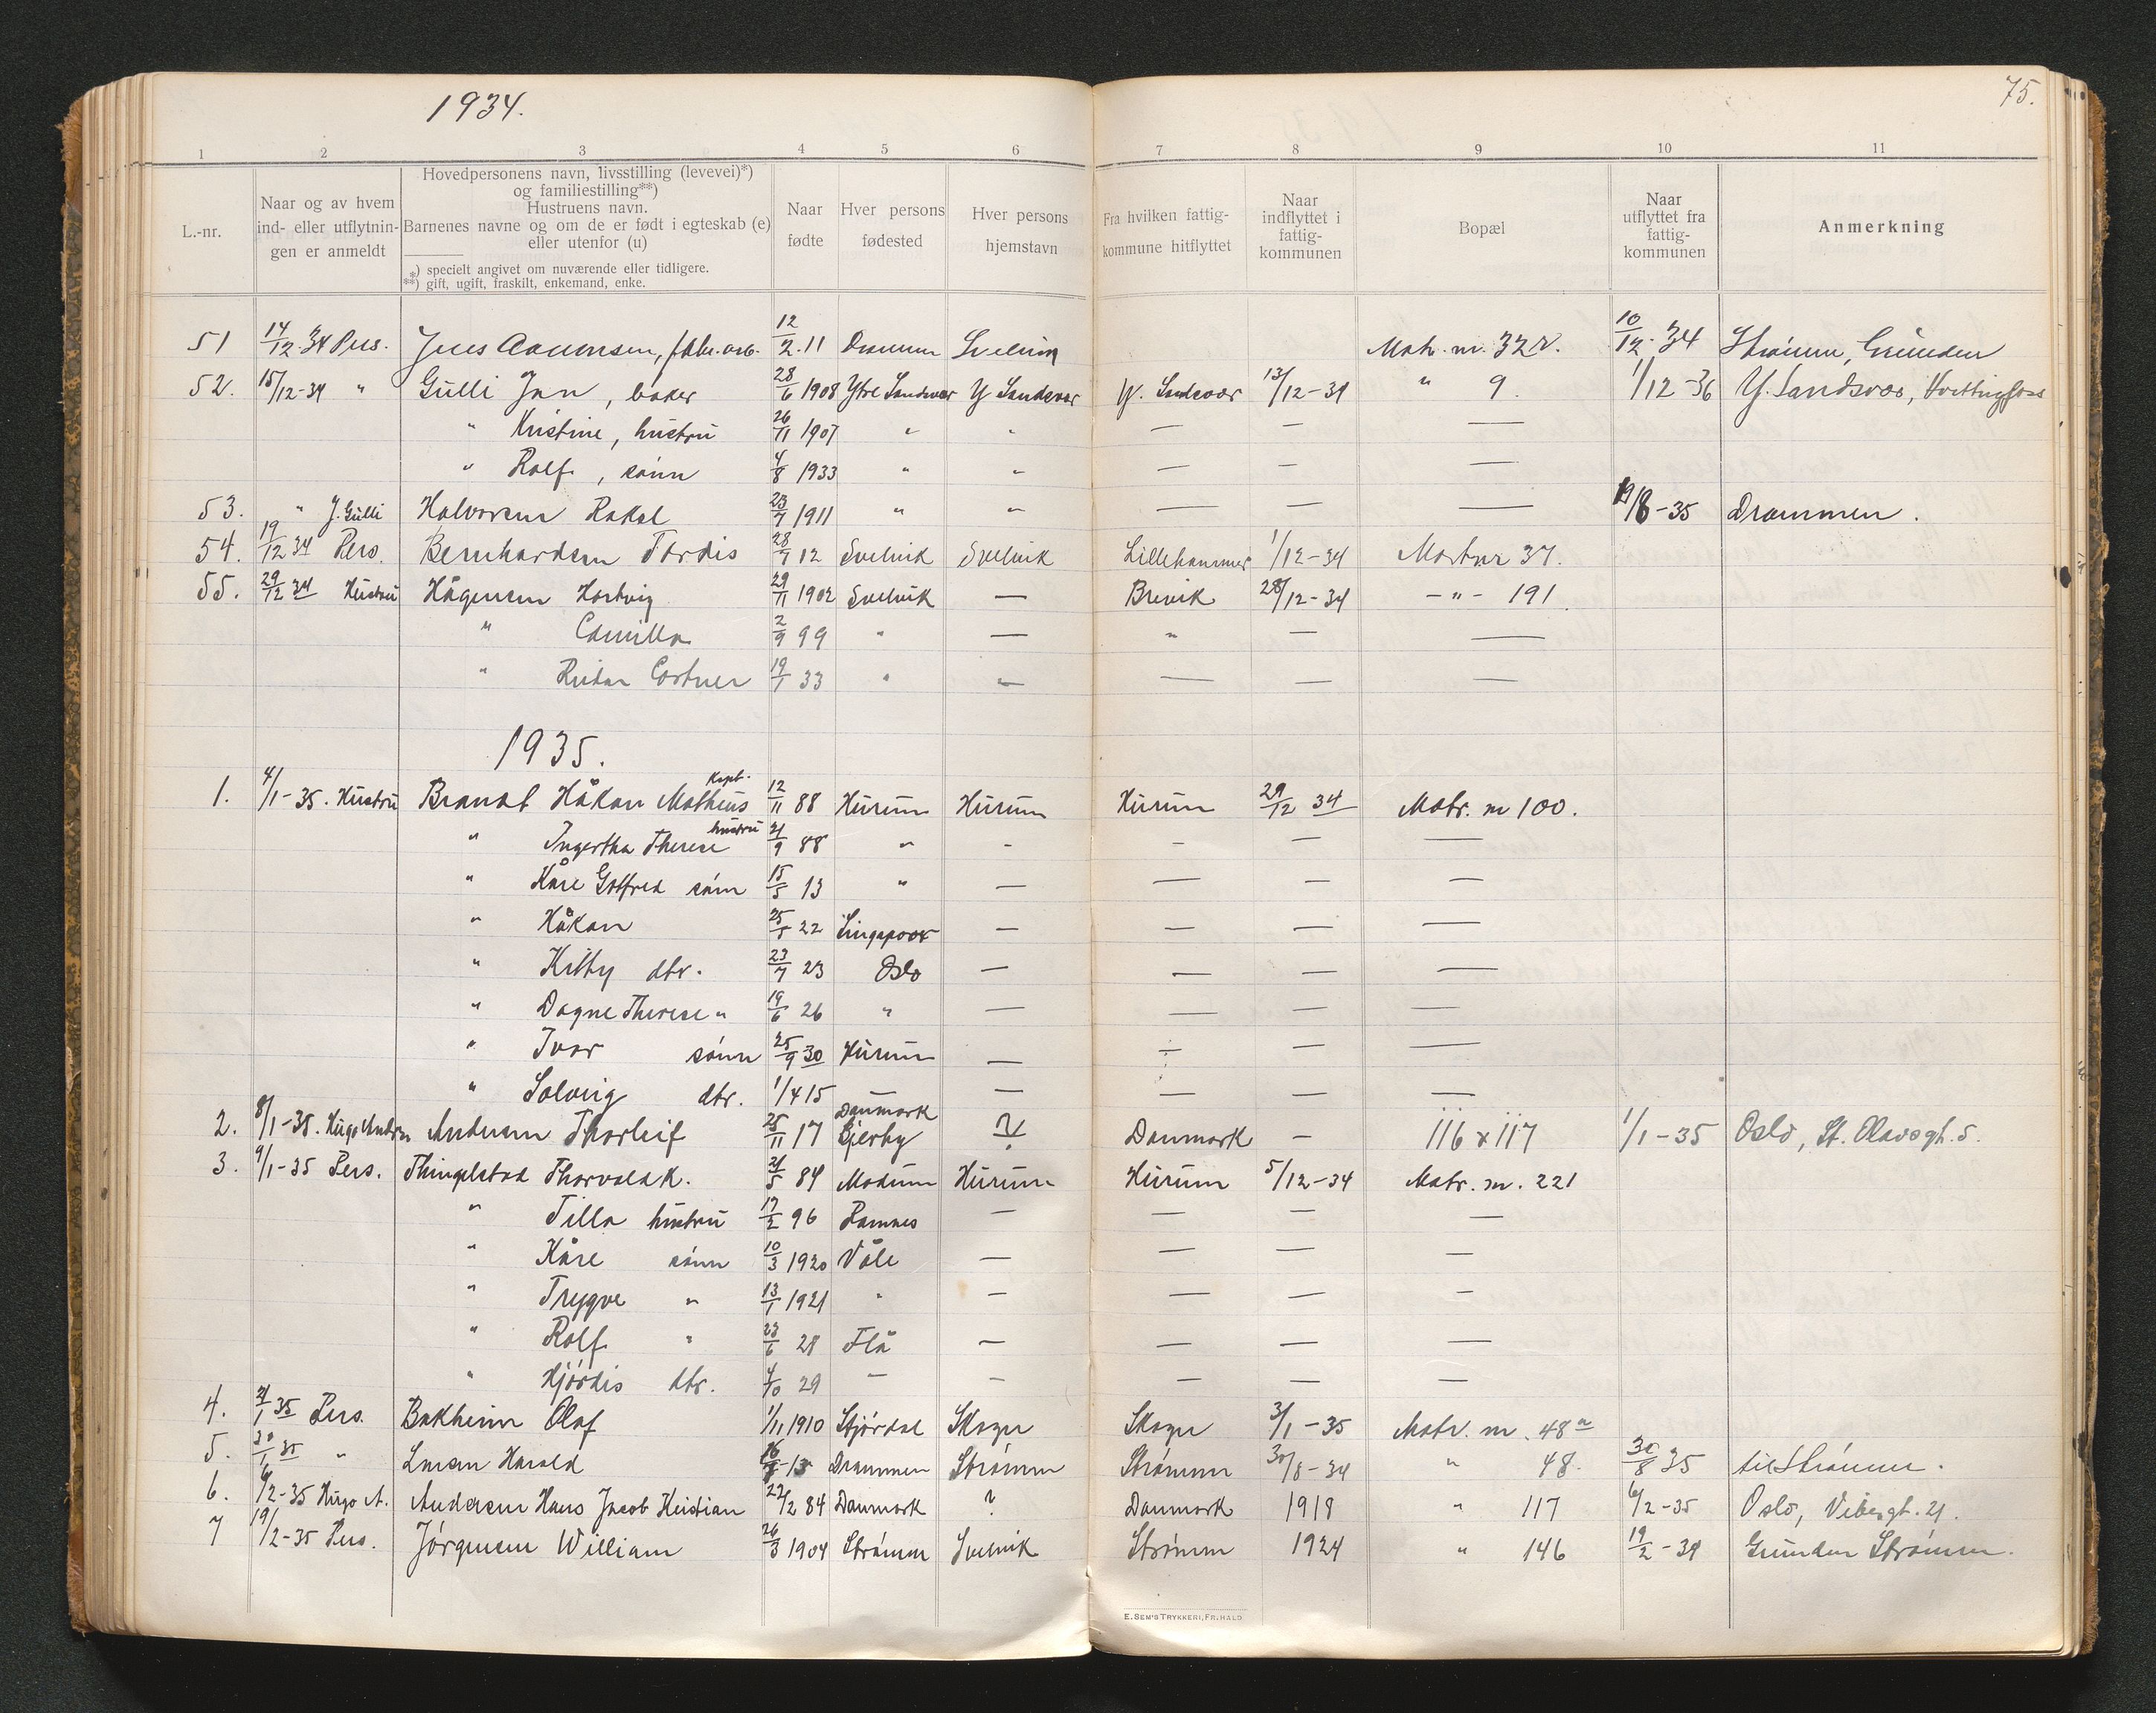 1934.
75.
1 2 3 4 5 6 7 8 9 10 11
L.-nr.
Naar og av hvem
ind- eller utflytnin-
gen er anmeldt
Hovedpersonens navn, livsstilling (levevei)*)
og familiestilling**)
Hustruens navn.
Barnenes navne og om de er født i egteskab (e)
eller utenfor (u)
*) specielt angivet om nuværende eller tidligere.
**) gift, ugift, fraskilt, enkemand, enke.
Naar
fødte
Hver persons
fødested
Hver persons
hjemstavn
Fra hvilken fattig-
kommune hitflyttet
Naar
indflyttet i
fattig-
kommunen
Bopæl
Naar
utflyttet fra
fattig-
kommunen
Anmerkning
51 14/12-34 Pers. Jens 12/2-11 Drammen Svelvik Matr. nr. 32 10/12-34 Strømm, Grunden
52. 15/12-34 " Gulli Jan, baker 28/6 1908 Ytre Sandsvær Y Sandsvær Y. Sandsvær 13/12-34 " 9. 1/12-36 Y. Sandsvær, Hvittingfoss
" Kristine, hustru 26/11 1907 " " — — —
" Rolf, sønn 4/8 1933 " " — — —
53. " J. Gulli Halvorsen Rakel 23/7 1911 " " — — — 19/8-35 Drammen.
54. 19/12 34 Pers. Bernhardsen Tordis 28/7 12 Svelvik Svelvik Lillehammer 1/12-34 Matr nr 37.
55. 29/12 34 Hustru Hågensen Hartvig 29/11 1902 Svelvik — Brevik 28/12-34 -"- 191.
" Camilla 2/9 99 " — " — —
" Reidar 19/1 33 " — — — —
1935.
1. 4/1-35. Hustru Brandt Håkon Matheus kapt. 12/11 88 Hurum Hurum Hurum 29/12 34 Matr. nr 100.
" Ingertha Therese hustru 21/9 88 " - - — —
" Kåre Gotfred sønn 15/5 13 " — — — —
" Håkon 25/5 22 Singapoor — — — —
" Kitty dtr. 23/7 23 Oslo — — — —
" Dagne Therese " 19/6 26 " — — — —
" Ivar sønn 25/9 30 Hurum — — — —
" Solveig dtr. 1/4 15 — — — — —
2. 8/1-35. Hugo Andersen Andersen Thorleif 25/11 17 Danmark Bjerby ? Danmark - 116 x 117 1/1-35 Oslo, St. Olavsgt. 5.
3. 9/1-35 Pers. Thingelstad Thorvald K. 21/5 84 Modum Hurum Hurum 5/12-34 Matr. nr. 221
" Tilla hustru 17/2 96 Ramnes — — — —
" Kåre sønn 10/3 1920 Våle — — — —
" Trygve " 13/1 1921 " — — — —
" Rolf " 23/6 28 Flå — — — —
" Hjørdis dtr. 4/10 29 — — — — —
4. 21/1 35 Pers. Bakheim Olaf 1/11 1910 Stjørdal Skoger Skoger 3/1-35 Matr. nr. 48a
5. 30/1 35 " Larsen Harald 13 Drammen Strømm Strømm 30/8-34 " 48. 30/8 35 til Strømm.
6. 6/2-35 Hugo A. Andersen Hans Jacob Kristian 22/2 84 Danmark ? Danmark 1918 " 117 6/2-35 Oslo, Vibesgt. 21.
7 19/2-35 Pers. Jørgensen William 26/3 1904 Strømm Svelvik Strømm 1924 " 146 19/2-34 Grunden Strømm.
E. SEM'S TRYKKERI, FR.HALD